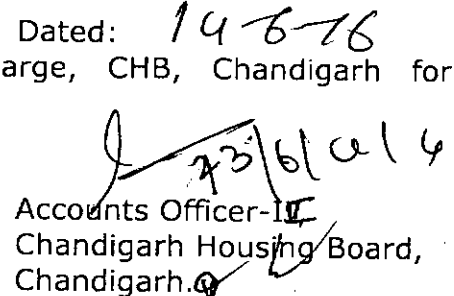 Dated: 14-6-16
arge, CHB, Chandigarh for
Accounts Officer-II
Chandigarh Housing Board,
Chandigarh.